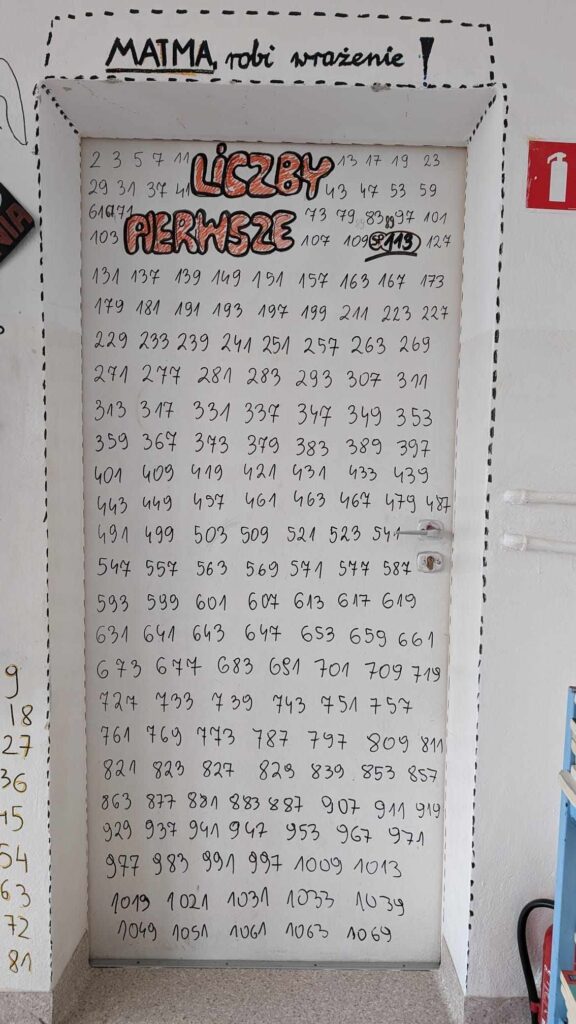 MATMA, robi wrażenie!
2 3 5 7 11 LICZBY 13 17 19 23
29 31 37 41 43 47 53 59
61 71 PIERWSZE 73 79 83 89 97 101
103 107 109 113 127
131 137 139 149 151 157 163 167 173
179 181 191 193 197 199 211 223 227
229 233 239 241 251 257 263 269
271 277 281 283 293 307 311
313 317 331 337 347 349 353
359 367 373 379 383 389 397
401 409 419 421 431 433 439
443 449 457 461 463 467 479 487
491 499 503 509 521 523 541
547 557 563 569 571 577 587
593 599 601 607 613 617 619
631 641 643 647 653 659 661
673 677 683 691 701 709 719
727 733 739 743 751 757
761 769 773 787 797 809 811
821 823 827 829 839 853 857
863 877 881 883 887 907 911 919
929 937 941 947 953 967 971
977 983 991 997 1009 1013
1019 1021 1031 1033 1039
1049 1051 1061 1063 1069
9
18
27
36
45
54
63
72
81